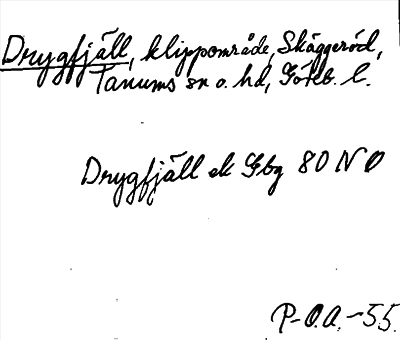 Drygfjäll, klippområde, Skäggeröd,
Tanums sn o. hd, Göteb. l.
Drygfjäll ek Gbg 80 N O
P-O.A. -55.